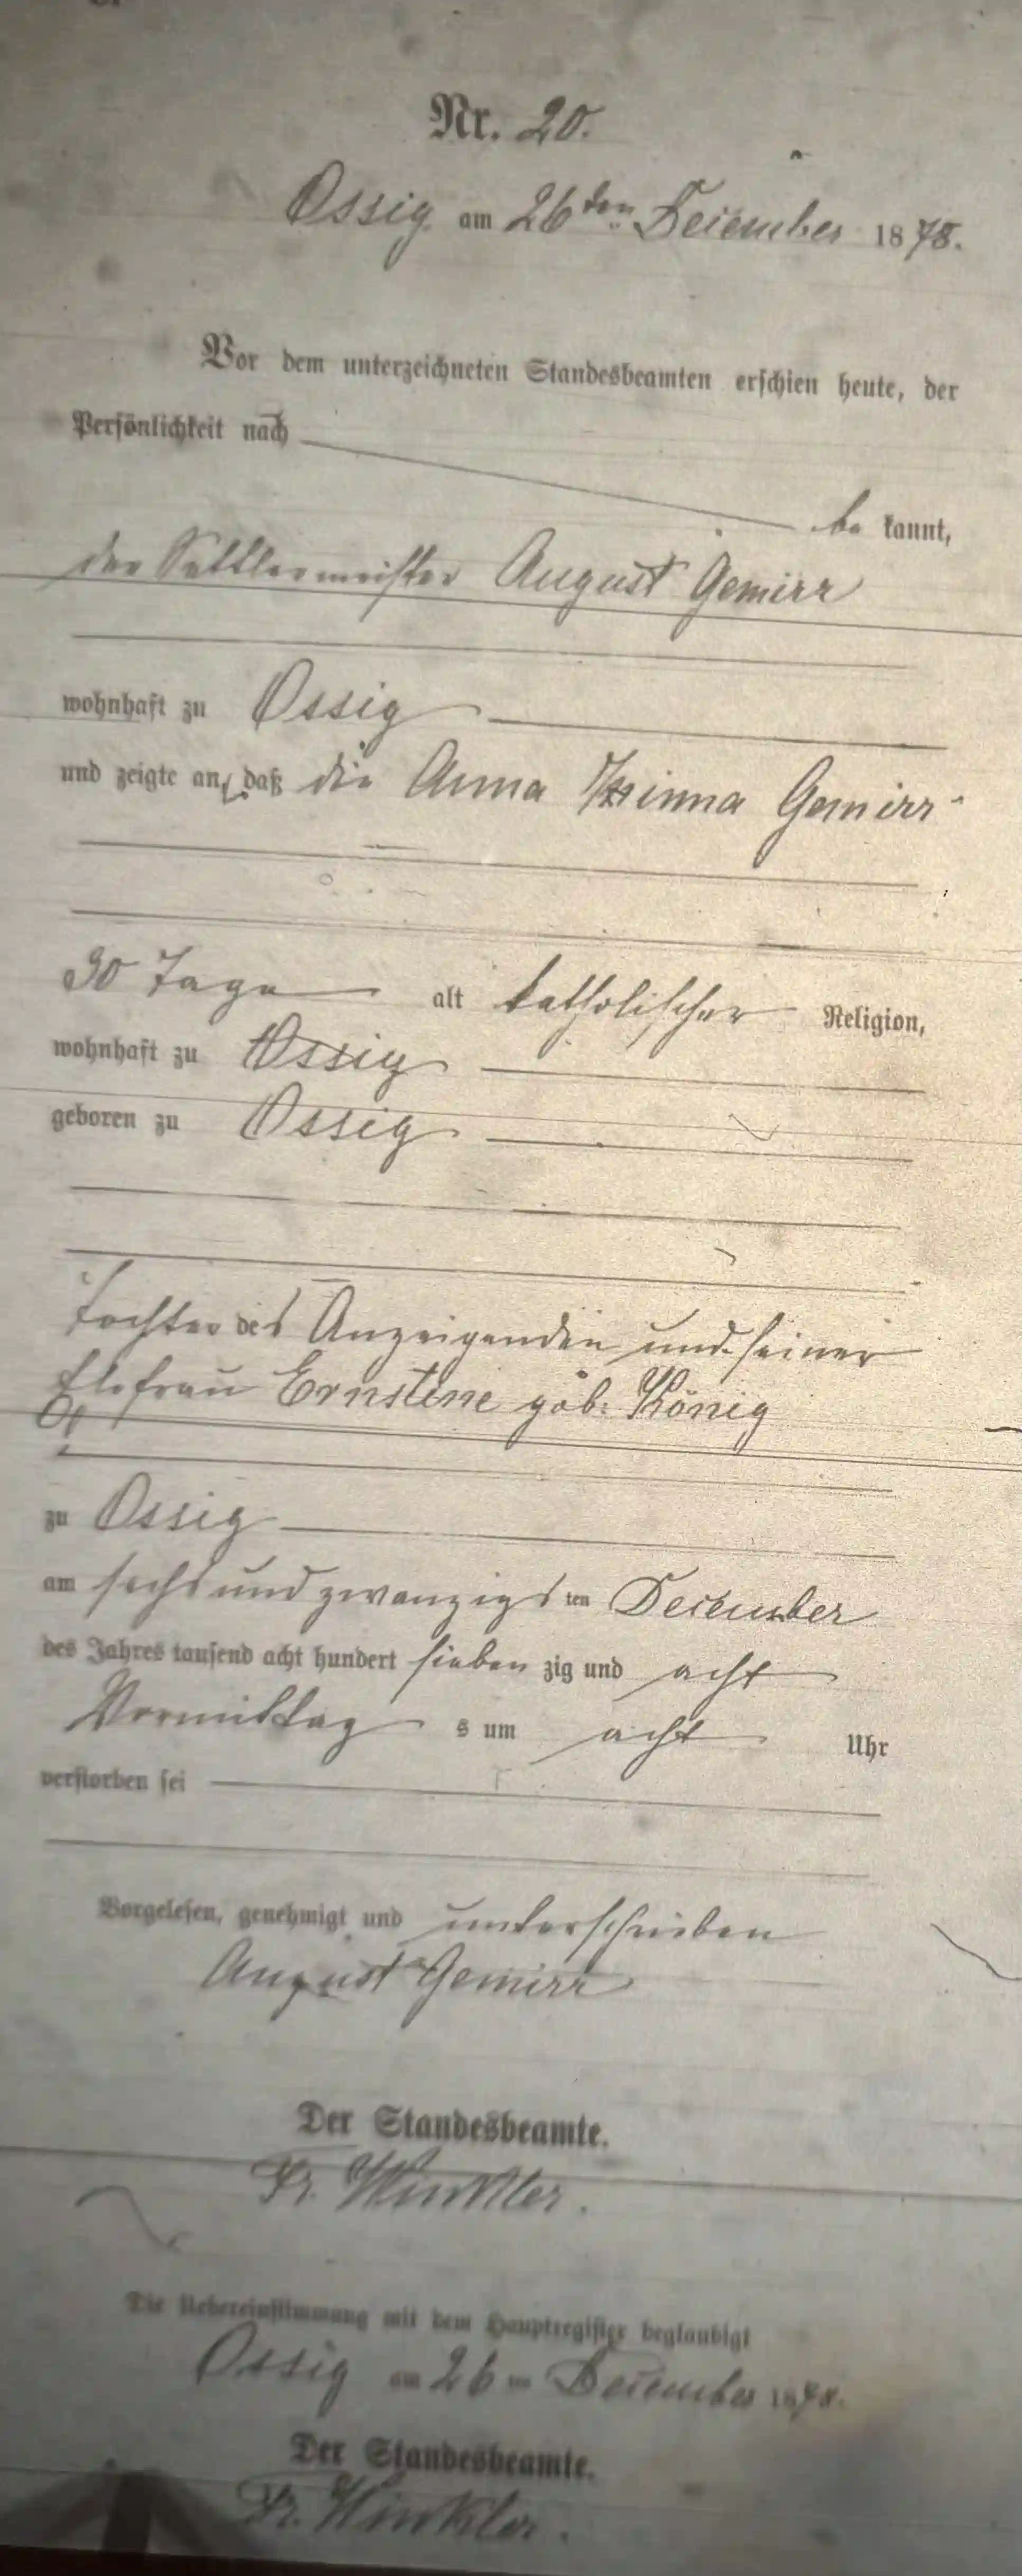 Nr. 20.
Ossig am 26ten December 1878.
Vor dem unterzeichneten Standesbeamten erschien heute, der
Persönlichkeit nach
be kannt,
der Sattlermeister August Gemirr
wohnhaft zu Ossig
und zeigte an, daß die Anna Minna Gemirr
30 Tage alt katholischer Religion,
wohnhaft zu Ossig
geboren zu Ossig
Tochter des Anzeigenden und seiner
Ehefrau Ernstine geb: König
zu Ossig
am sechs und zwanzigs ten December
des Jahres tausend acht hundert sieben zig und acht
Vormittag s um acht Uhr
verstorben sei
Vorgelesen, genehmigt und unterschrieben
August Gemirr
Der Standesbeamte.
Fr. Winkler.
Die Uebereinstimmung mit dem Hauptregister beglaubigt
Ossig am 26 ten December 1878.
Der Standesbeamte.
Fr. Winkler.